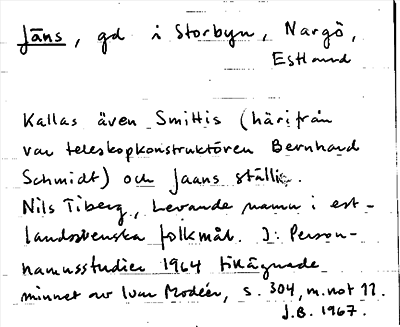 Jäns, gd i Storbyn, Nargö,
Estland
Kallas även Smittis (härifrån
var teleskopkonstruktören Bernhard
Schmidt) och Jaans ställe.
Nils Tiberg, Levande namn i est-
landssvenska folkmål. I: Person-
namnsstudier 1964 tillägnade
minnet av Ivar Modéer, s. 304, m. not 11.
J.B. 1967.